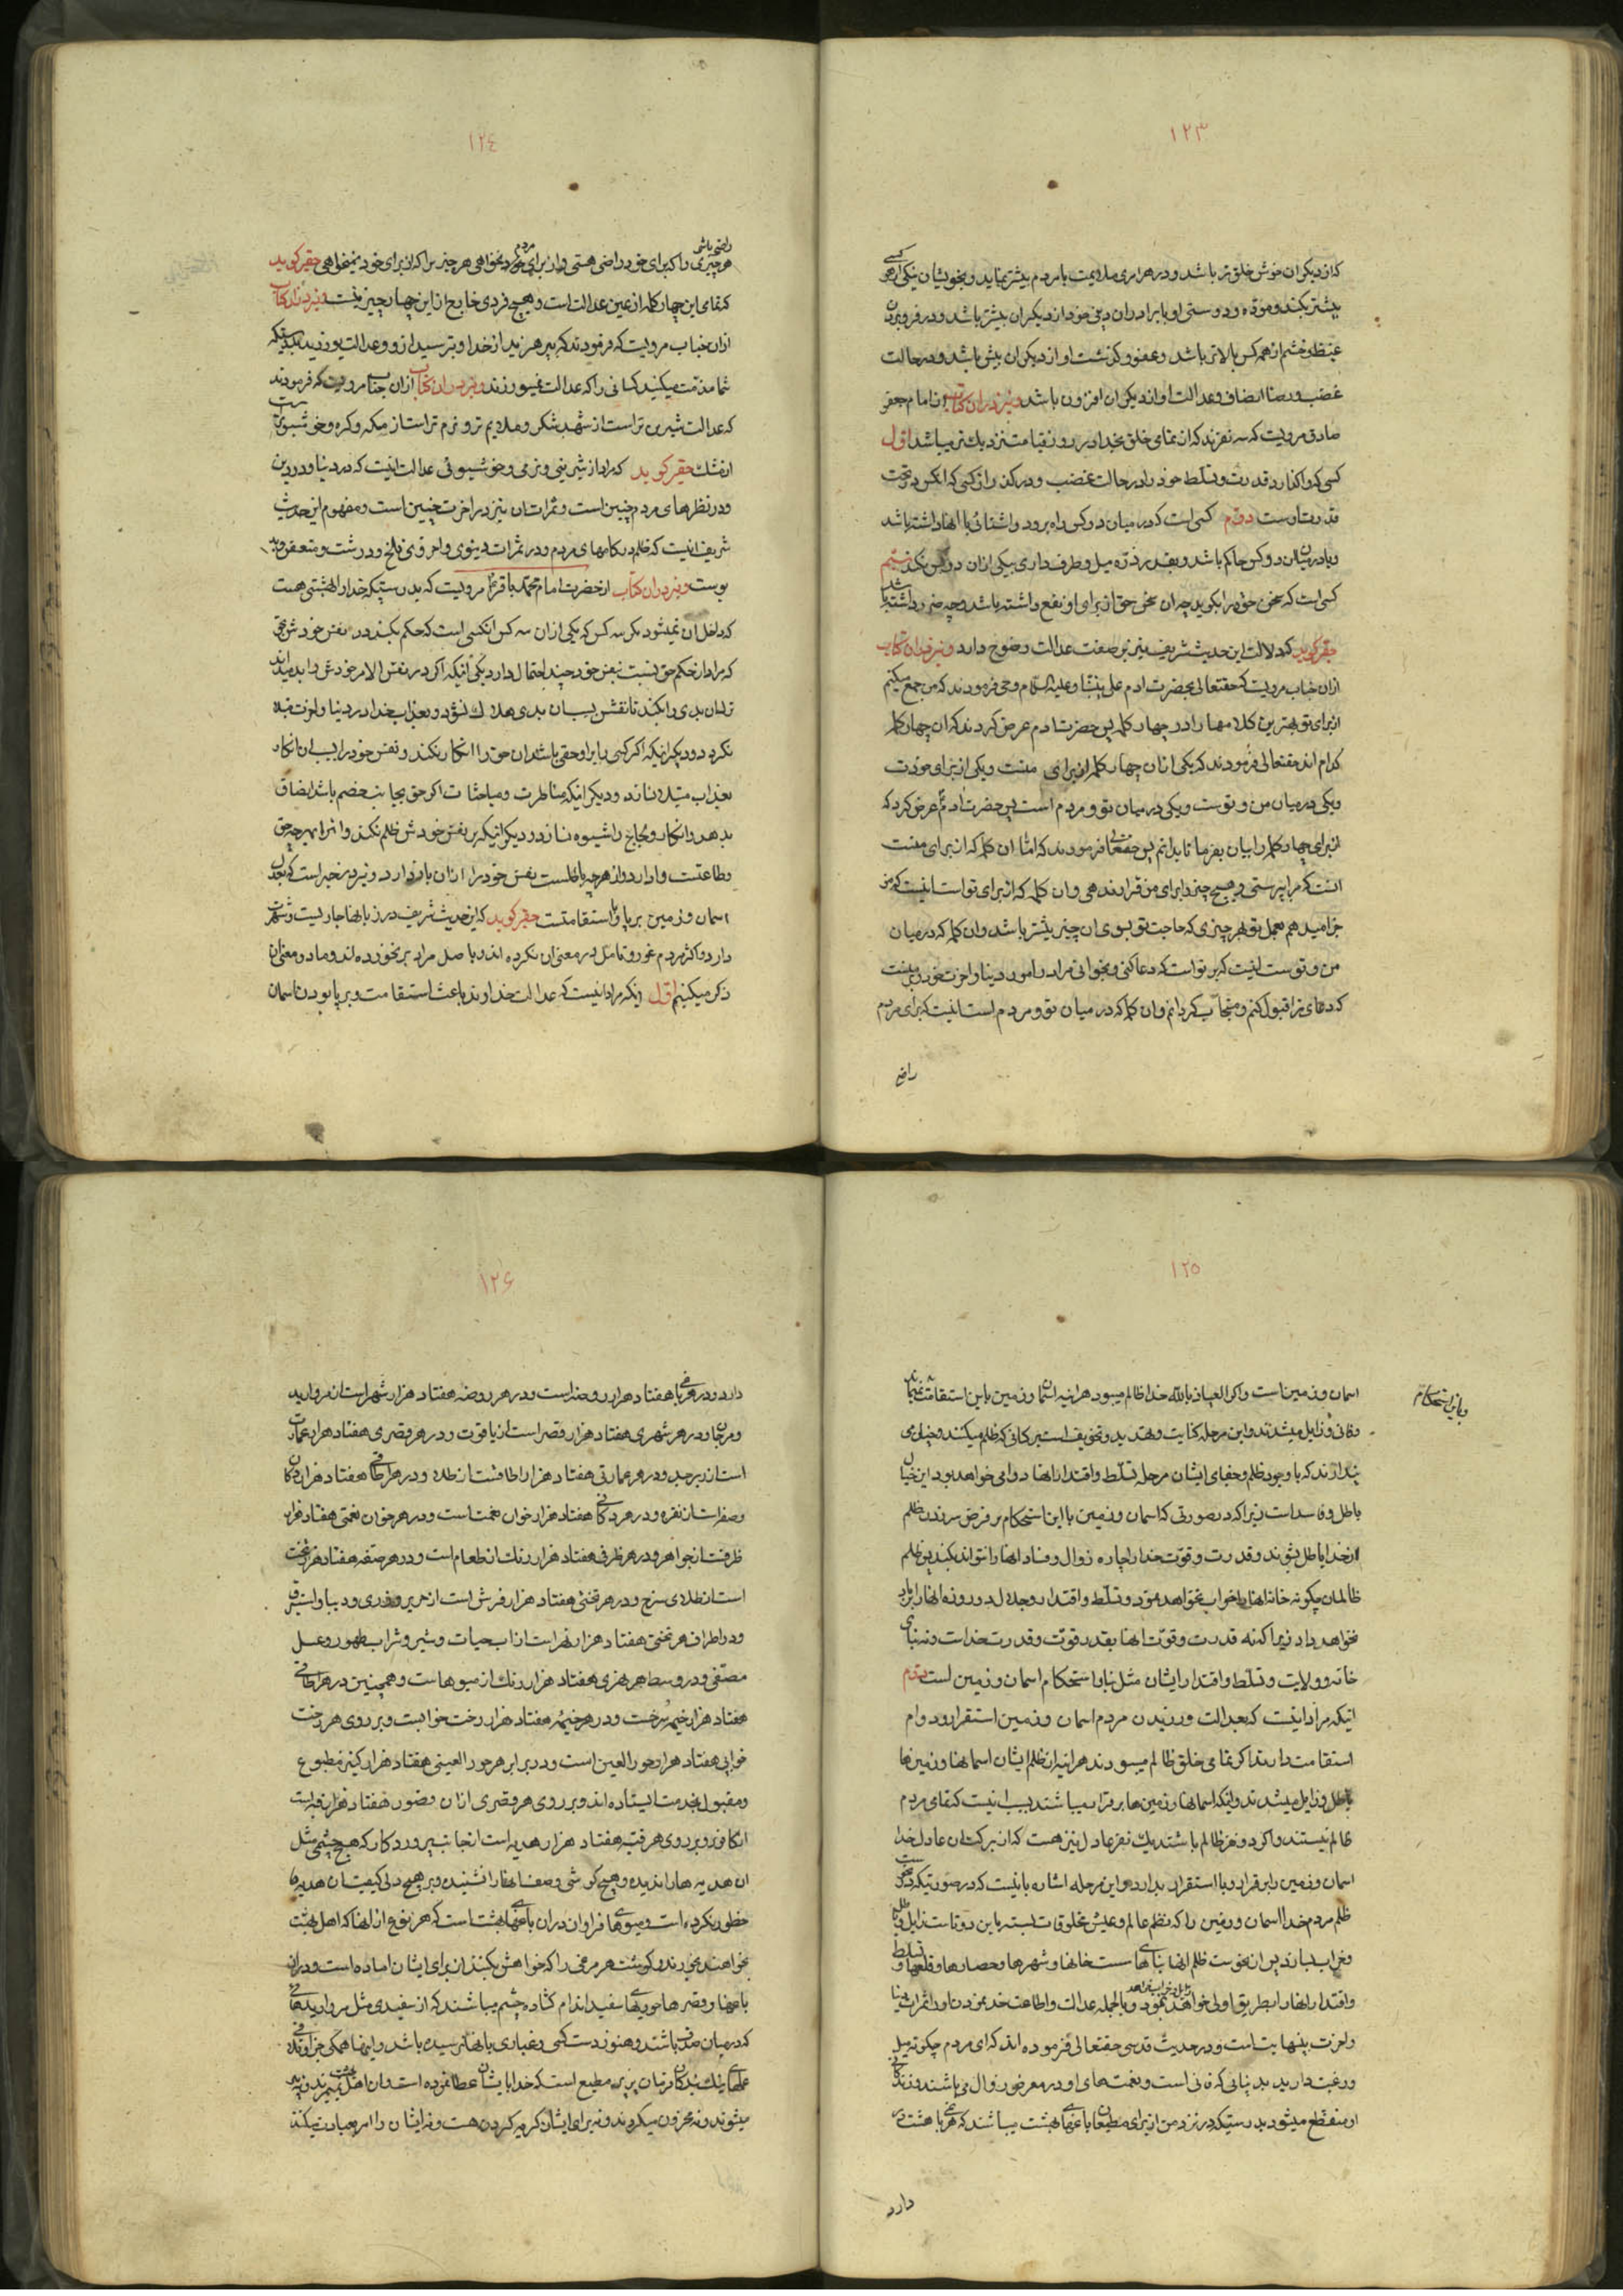 ١٢٣
که از دیگران خوش خلق تر باشد و در هر امری ملایمت با مردم بیشتر نماید و بخویشان نیکی از هر کسی
بیشتر بکند و مودّه و دوستی او با برادران دینی خود از دیگران بیشتر باشد و در فرو بردن
غیظ و خشم از همه کس بالاتر باشد و عفو و گذشت او از دیگران بیش باشد و در حالت
غضب و رضا انصاف و عدالت او از دیگران افزون باشد و نیز در ان کتاب از امام جعفر
صادق مرویست که سه نفرند که از تمامی خلق بخدا در روز قیامت نزدیک تر میباشد اول
کسی که وا نگذارد قدرت و تسلّط خود را در حالت غضب و در گذراند کسی که انکس در تحت
قدرت اوست دوّم کسی است که در میان دو کس راه برود و اشنائی با انها داشته باشد
و یا در میان دو کس حاکم باشد و بقدر ذرّه میل و طرف داری بیکی از ان دو کس نکند سیّم
کسی است که سخن حق را بگوید چه ان سخن حق از برای او نفع داشته باشد و چه ضرر داشته باشد
حقیر گوید که دلالت این حدیث شریف نیز بر صفت عدالت وضوح دارد و نیز در ان کتاب
از ان جناب مرویست که حقتعالی بحضرت ادم علی نبیّنا و علیه السّلام وحی فرمودند که من جمع میکنم
از برای تو بهترین کلامها را در چهار کلمه پس حضرت ادم عرض کردند که ان چهار کلمه
کدام اند حقتعالی فرمودند که یکی از ان چهار کلمه از برای منست و یکی از برای خودت
و یکی در میان من و توست و یکی در میان تو و مردم است پس حضرت ادم ع عرض کرد که
از برای چهار کلمه را بیان بفرما تا بدانم پس حقتعالی فرمودند که امّا ان کلمه که از برای منست
انست که مرا پرستی و هیچ چیز را برای من قرار ندهی و ان کلمه که از برای تو است اینست که من
جزا میدهم بعمل تو بهر چیزی که حاجت تو بسوی ان چیز بیشتر باشد و ان کلمه که در میان
من و توست اینست که بر تو است که دعا کنی و بخوانی مرا در امور دنیا و اخرت خود و بر منست
که دعای ترا قبول کنم و مستجاب گردانم و ان کلمه که در میان تو و مردم است اینست که برای مردم
راضی
١٢٤
راضی باشی
هر چیزی را که برای خود راضی هستی و از برای مردم نخواهی هر چیزیرا که از برای خود نمیخواهی حقیر گوید
که تمامی این چهار کلمه از عین عدالت است و هیچ فردی خارج از این چهار چیز نیست و نیز در ان کتاب
از ان جناب مرویست که فرمودند که بپرهیزید از خدا و بترسید از او و عدالت بورزید بدرستیکه
شما مذمّت میکنید کسانی را که عدالت نمیورزند و نیز در ان کتاب از ان جناب مرویست که فرمودند
که عدالت شیرین تر است از شهد شکر و ملایم تر و نرم تر است از مسکه و کره و خوشبوتر است
از مشک حقیر گوید که مراد از شیرینی و نرمی و خوشبوئی عدالت اینست که در دنیا و در دین
و در نظرهای مردم چنین است و ثمرات ان نیز در اخرت چنین است و مفهوم این حدیث
شریف اینست که ظلم در کامهای مردم و در ثمرات دنیوی و اخروی تلخ و درشت و متعفن و بد
بوست و نیز در ان کتاب از حضرت امام محمّد باقر ع مرویست که بدرستیکه خدا را بهشتی هست
که داخل ان نمیشود مگر سه کس که یکی از ان سه کس انکسی است که حکم بکند در نفس خودش بحق
که مراد از حکم حق نسبت بنفس خود چند احتمال دارد یکی اینکه اگر در نفس الامر خودش را بد میداند
ترک ان بدی را بکند تا نفس بسبب ان بدی هلاک نشود و بعذاب خدا در دنیا و اخرت مبتلا
نگردد و دیگر اینکه اگر کسی را بر او حقی باشد ان حق را انکار نکند و نفس خود را بسبب ان انکار
بعذاب مبتلا نسازد و دیگر اینکه مناظرت و مباحثات اگر حق بجانب خصم باشد انصاف
بدهد و انکار و لجاج را شیوه نسازد و دیگر اینکه بر نفس خودش ظلم نکند و انرا بهر چه حق
و طاعتست وا دارد و از هر چه باطلست نفس خود را از ان باز دارد و نیز در خبر است که بعدل
اسمان و زمین بر پا و با استقامتست حقیر گوید که این حدیث شریف در زبانها جاریست و شهرت
دارد و اکثر مردم غور و تامّل در معنی ان نکرده اند و باصل مراد بر نخورده اند و ما دو معنی ان
ذکر میکنیم اوّل اینکه مراد اینست که عدالت خداوند باعث استقامت و بر پا بودن اسمان
١٢٥
و باین استحکام
اسمان و زمین است و اگر العیاذ بالله خدا ظالم میبود هر اینه اسمان و زمین باین استقامت نمیماند
و فانی و زایل میشدند و این مرحله کنایت و تهدید و تخویف است بر کسانیکه ظلم میکنند و خیال می
پندارند که با وجود ظلم و جفای ایشان مرحله تسلّط و اقتدار انها دوامی خواهد بود این خیال
باطل و فاسد است زیرا که در صورتی که اسمان و زمین با این استحکام بر فرض سر زدن ظلم
از خدا باطل بشوند و قدرت و قوّت خدا را چاره زوال و فساد انها را نتواند بکند پس ظلم
ظالمان چگونه خانه انها را خراب نخواهد نمود و تسلّط و اقتدار و جلال دو روزه انها را بر باد
نخواهد داد زیرا که نه قدرت و قوّت انها بقدر قوّت و قدرت خداست و نه بنای
خانه و ولایت و تسلّط و اقتدار ایشان مثل بنا و استحکام اسمان و زمین است دوّم
اینکه مراد اینست که بعدالت ورزیدن مردم اسمان و زمین استقرار و دوام
استقامت دارند اگر تمامی خلق ظالم میبودند هر اینه از ظلم ایشان اسمانها و زمین ها
باطل و زایل میشدند و اینکه اسمانها و زمین ها برقرار میباشند بسبب انیست که تمامی مردم
ظالم نیستند و اگر دو نفر ظالم باشند یک نفر عادل نیز هست که از برکت ان عادل خدا
اسمان و زمین را برقرار و با استقرار بدارد و این مرحله اشاره بانیست که در صورتیکه نحوست
ظلم مردم خدا اسمان و زمین را که نظم عالم و عیش مخلوقات بسته باین دوتاست زایل و باطل
و خراب بسازد پس از نحوست ظلم انها بناهای سست خانها و شهرها و حصارها و قلعها و تسلط
و اقتدار انها را بطریق اولی خواهد نمود و بالجمله عدالت و اطاعت خدا نمودن را در ثمرات دنیا
و اخرت بینهایتست و در حدیث قدسی حقتعالی فرموده اند که ای مردم چگونه میل
و رغبت دارید بدنیائی که فانی است و نعمت های او در معرض زوال میباشند و زندگانی
او منقطع میشود بدرستیکه در نزد من از برای مطیعان باغهای بهشت میباشد که هر باغی هشت در
دارد
١٢۶
دارد و در هر باغی هفتاد هزار روضه است و در هر روضه هفتاد هزار شهر است از مروارید
و مرجان و در هر شهری هفتاد هزار قصر است از یاقوت و در هر قصری هفتاد هزار عمارت
است از زبرجد و در هر عمارتی هفتاد هزار اطاقست از طلا و در هر اطاقی هفتاد هزار دکان
و صفه است از نقره و در هر دکانی هفتاد هزار خوان نعمت است و در هر خوان نعمتی هفتاد هزار
ظرفست از جواهر و در هر ظرفی هفتاد هزار رنگ از طعام است و در هر صفّه هفتاد هزار تخت
است از طلای سرخ و در هر تختی هفتاد هزار فرش است از حریر و خز و دیبا و استبرق
و در اطراف هر تختی هفتاد هزار نهر است از اب حیات و شیر و شراب طهور و عسل
مصفّی و در وسط هر نهری هفتاد هزار رنگ از میوهاست و همچنین در هر اطاقی
هفتاد هزار خیمه سرخست و در هر خیمه هفتاد هزار رخت خوابست و بر روی هر رخت
خوابی هفتاد هزار حور العین است و در برابر هر حور العینی هفتاد هزار کنیز مطبوع
و مقبول بخدمت ایستاده اند و بر روی هر قصری از ان قصور هفتاد هزار قبه است
از کافور و بر روی هر قبّه هفتاد هزار هدیه است از جانب پروردگار که هیچ چشمی مثل
ان هدیه ها را ندیده و هیچ گوشی وصف انها را نشنیده و بر هیچ دلی کیفیت ان هدیه ها
خطور نکرده است و میوهای فراوان در ان باغهای بهشت است که هر نوع از انها که اهل بهشت
بخواهند بخورند و گوشت هر مرغی را که خواهش بکنند از برای ایشان اماده است و در ان
باغها و قصرها حوریهای سفید اندام گشاده چشم میباشند که از سفیدی مثل مرواریدهائی
که در میان صدف باشند و هنوز دست کسی و غباری بانها نرسیده باشد و اینها همگی جزا و مزد
عملهای نیک بندگان فرمان بر مطیع است که خدا بایشان عطا نموده است و ان اهل بهشت نمیمیرند و نه پیر
میشوند و نه محزون میگردند و نه برای ایشان گریه کردن هست و نه ایشان را امر بعبادت میکنند